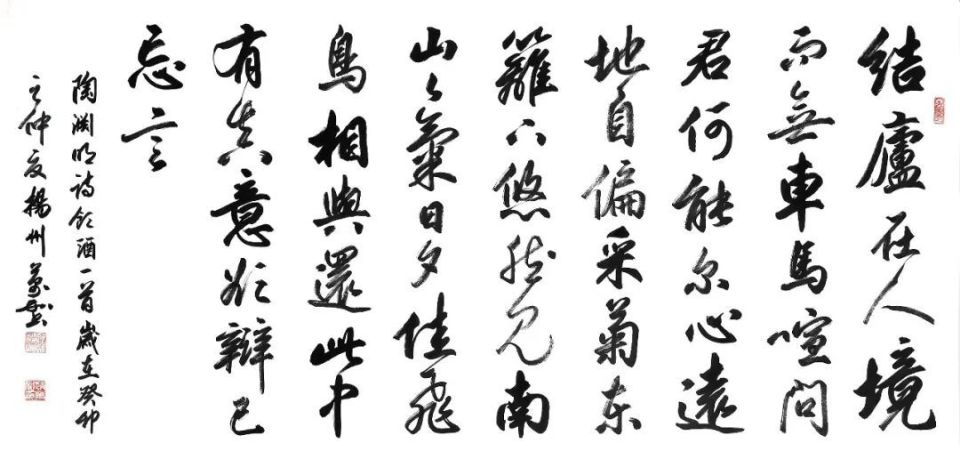 結廬在人境
而無車馬喧問
君何能尔心遠
地自偏采菊東
籬下悠然見南
山々氣日夕佳飛
鳥相與還此中
有真意欲辯已
忘言
陶淵明詩飲酒一首歲在癸卯
之仲夏揚州